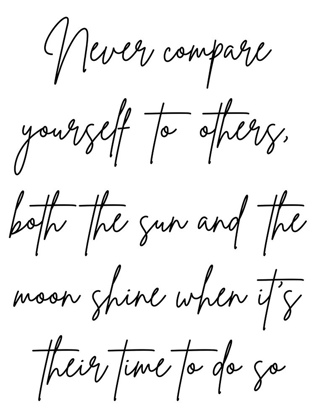 Never compare
yourself to others,
both the sun and the
moon shine when it's
their time to do so